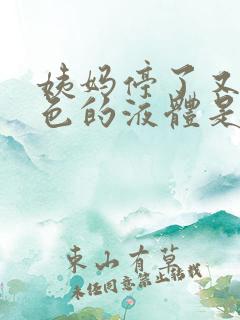 姨妈停了又
色的液體是
東山有草
未经同意禁止转载